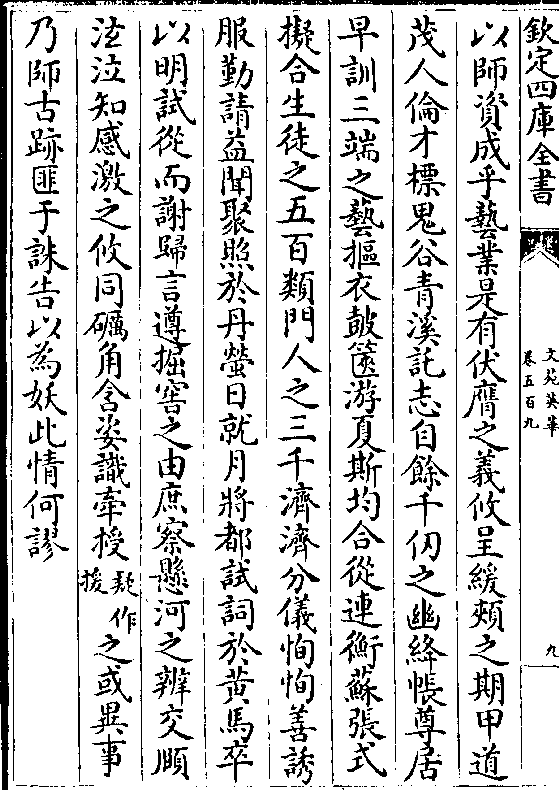 欽定四庫全書
文苑英華
卷五百九
九
以師資成乎藝業是有伏膺之義攸呈緩頰之期甲道
茂人倫才標鬼谷青溪託志自餘千仞之幽絳帳尊居
早訓三端之藝摳衣鼓篋游夏斯均合從連衡蘇張式
擬合生徒之五百類門人之三千濟濟分儀恂恂善誘
服勤請益聞聚照於丹螢日就月將都試詞於黃馬卒
以明試從而謝歸言遵掘窖之由庶察懸河之辨交頤
泣泣知感激之攸同礪角含姿識牽授疑作援之或異事
乃師古跡匪于誅告以為妖此情何謬